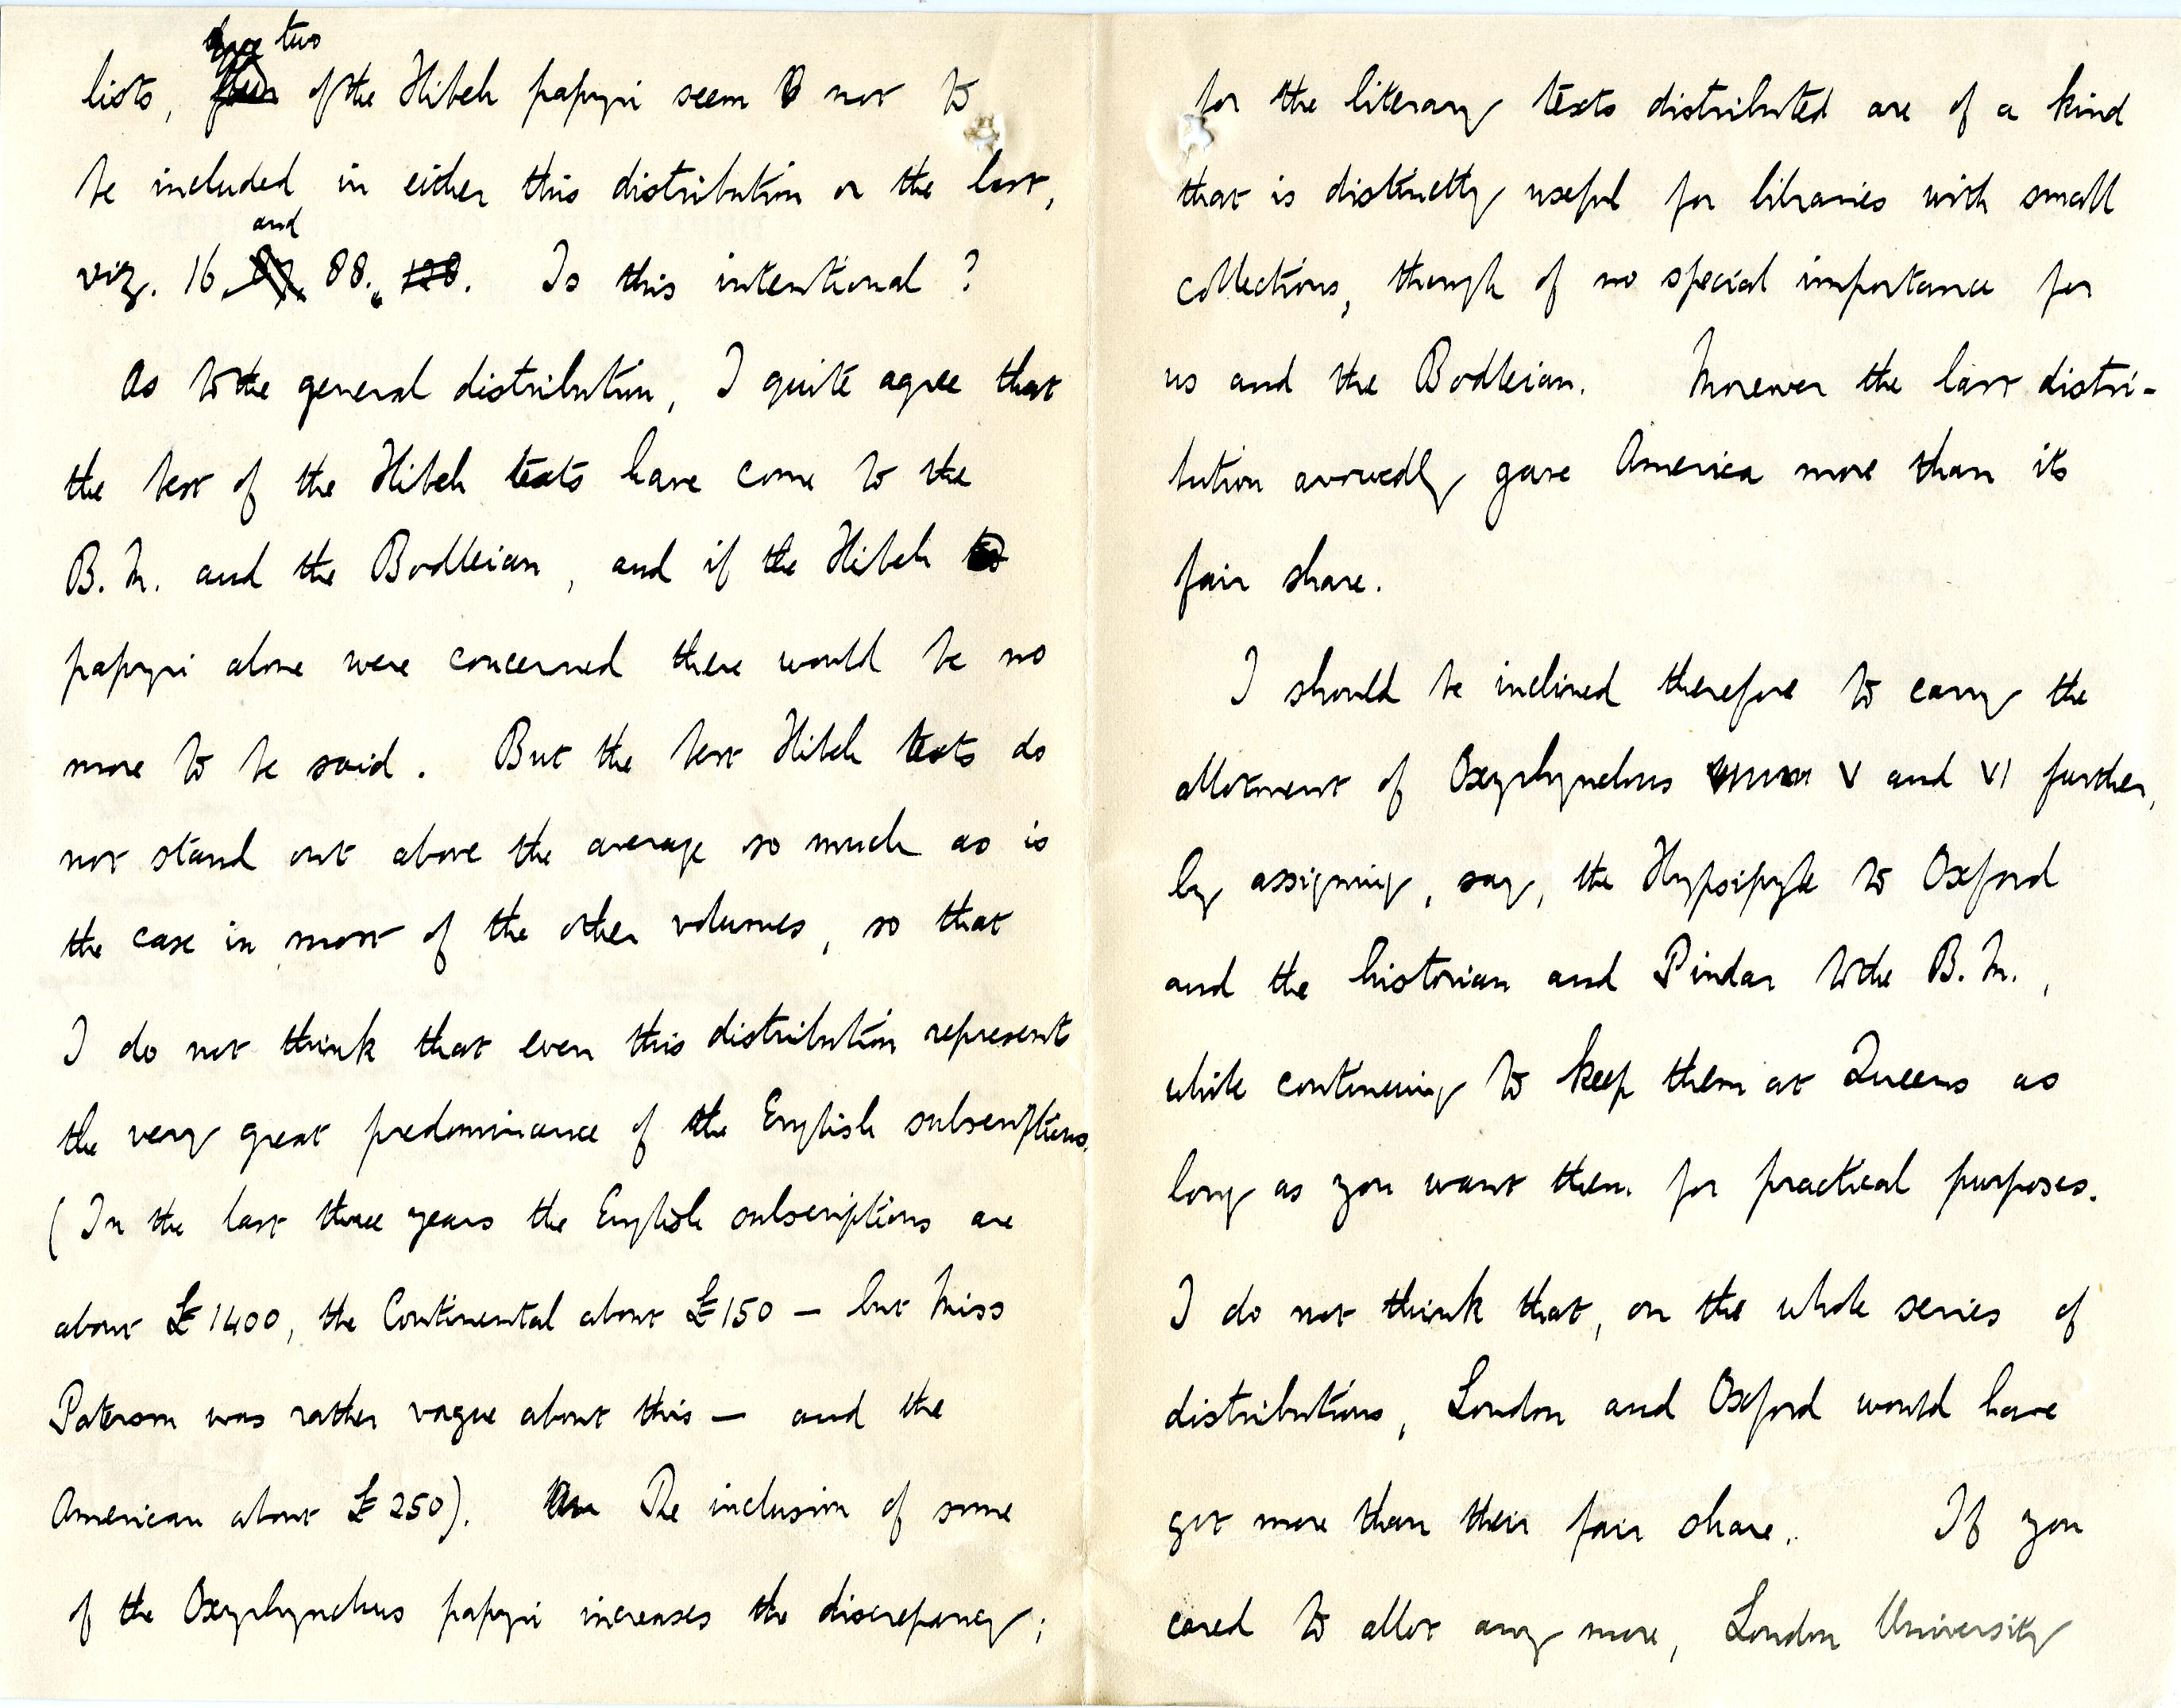 two
lists, of the Hibeh papyri seem not to
be included in either this distribution or the last,
and
viz. 16 87 88., 128. Is this intentional?
As to the general distribution, I quite agree that
the best of the Hibeh texts have come to the
B.M. and the Bodleian, and if the Hibeh
papyri alone were concerned there would be no
more to be said. But the best Hibeh texts do
not stand out above the average so much as is
the case in most of the other volumes, so that
I do not think that even this distribution represent
the very great predominance of the English subscriptions.
(In the last three years the English subscriptions are
about £1400, the Continental about £150 – but Miss
Paterson was rather vague about this – and the
American about £250). The inclusion of some
of the Oxyrhynchus papyri increases the discrepancy;
for the literary texts distributed are of a kind
that is distinctly useful for libraries with small
collections, though of no special importance for
us and the Bodleian. Moreover the last distri-
bution avowedly gave America more than its
fair share.
I should be inclined therefore to carry the
allotment of Oxyrhynchus V and VI further,
by assigning, say, the Hypsipyle to Oxford
and the historian and Pindar to the B.M.,
while continuing to keep them at Queens as
long as you want them for practical purposes.
I do not think that, on the whole series of
distributions, London and Oxford would have
got more than their fair share. If you
cared to allot any more, London University